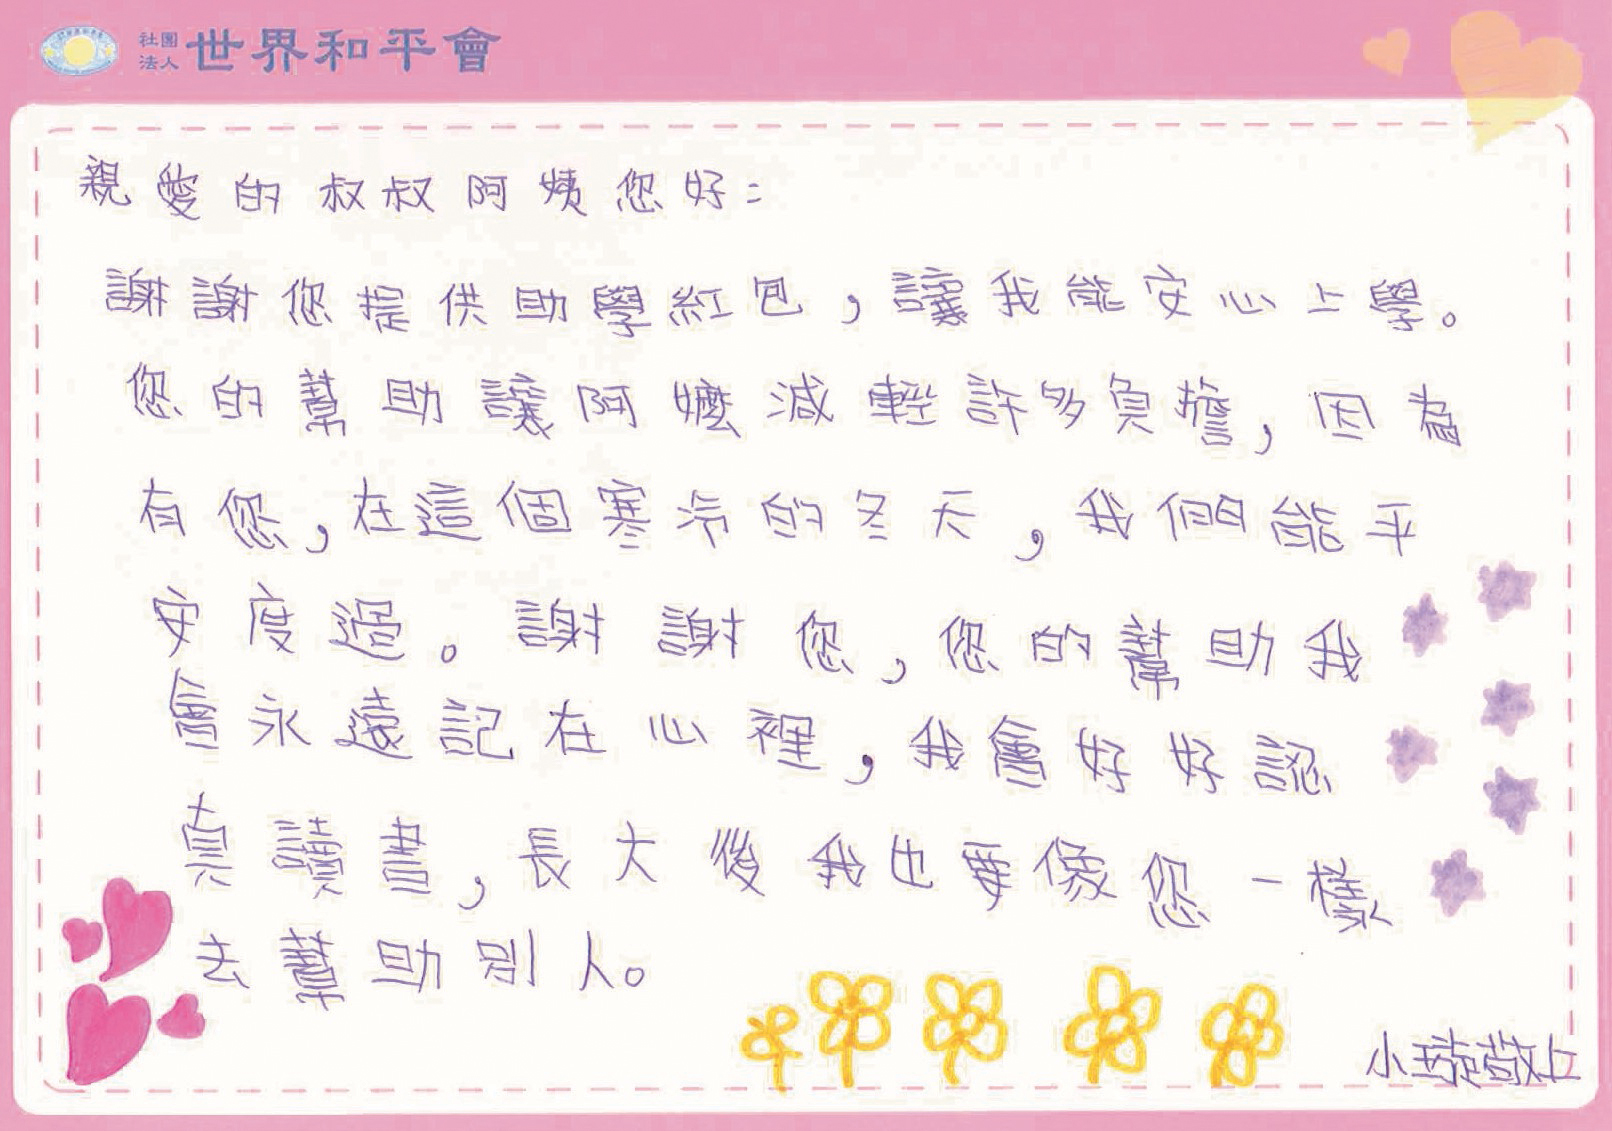 社團法人 世界和平會
親愛的叔叔阿姨您好：
謝謝您提供助學紅包，讓我能安心上學。
您的幫助讓阿嬤減輕許多負擔，因為
有您，在這個寒冷的冬天，我們能平
安度過。謝謝您，您的幫助我
會永遠記在心裡，我會好好認
真讀書，長大後我也要像您一樣
去幫助別人。
小琁敬上